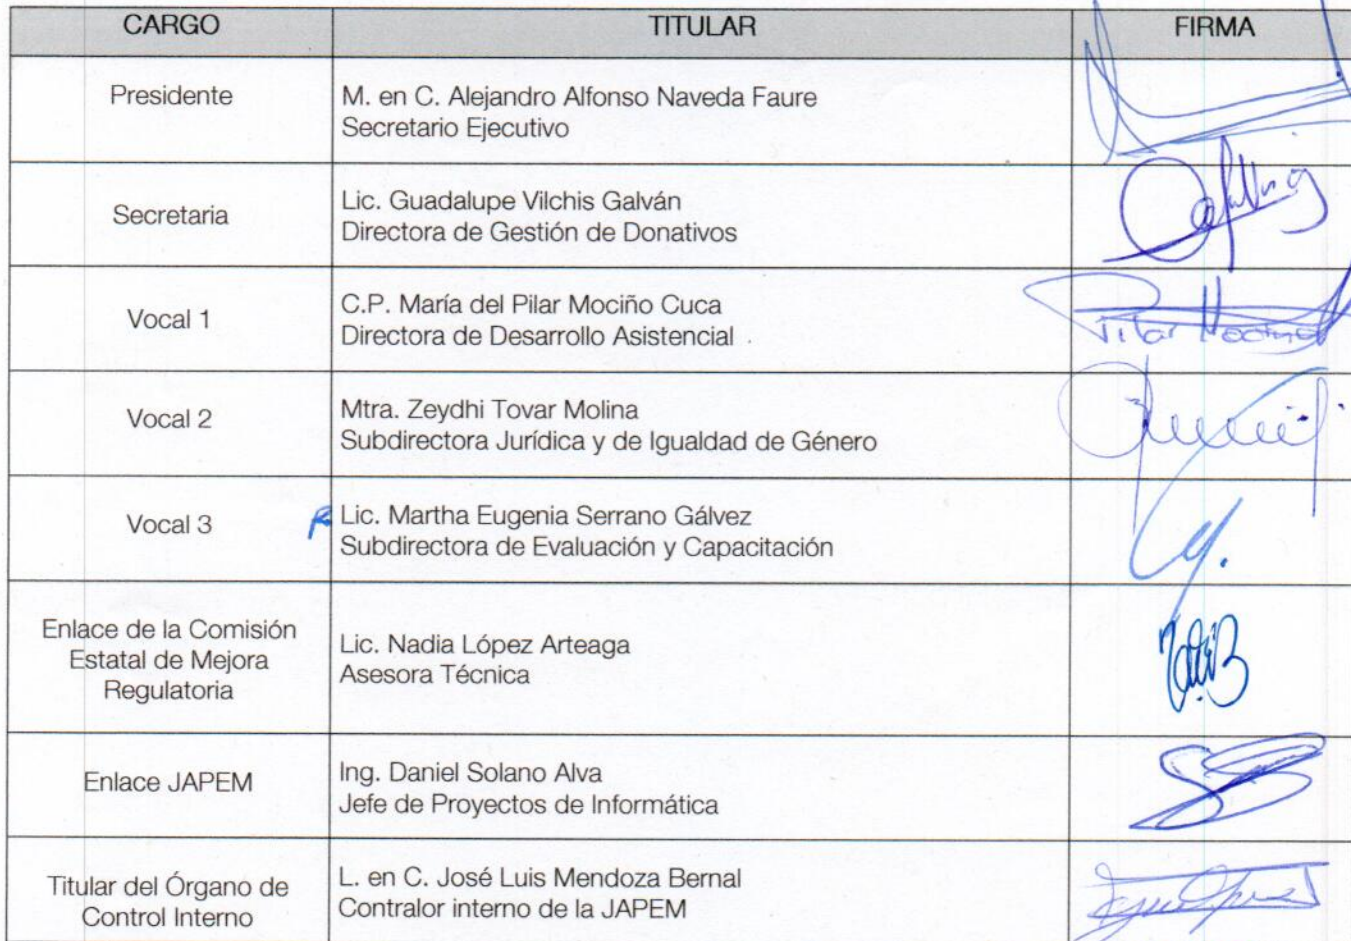 CARGO TITULAR FIRMA
Presidente
M. en C. Alejandro Alfonso Naveda Faure
Secretario Ejecutivo
Secretaria
Lic. Guadalupe Vilchis Galván
Directora de Gestión de Donativos
Vocal 1
C.P. María del Pilar Mociño Cuca
Directora de Desarrollo Asistencial
Pilar Mociño
Vocal 2
Mtra. Zeydhi Tovar Molina
Subdirectora Jurídica y de Igualdad de Género
Vocal 3
Lic. Martha Eugenia Serrano Gálvez
Subdirectora de Evaluación y Capacitación
Enlace de la Comisión
Estatal de Mejora
Regulatoria
Lic. Nadia López Arteaga
Asesora Técnica
Enlace JAPEM
Ing. Daniel Solano Alva
Jefe de Proyectos de Informática
Titular del Órgano de
Control Interno
L. en C. José Luis Mendoza Bernal
Contralor interno de la JAPEM